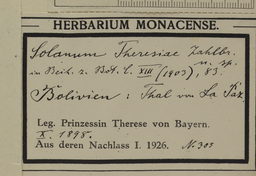 HERBARIUM MONACENSE.
Solanum Theresiae Zahlbr.
n. sp.
in Beih. z. Bot. C. XIII (1903), 83.
Bolivien: Thal von La Paz
Leg. Prinzessin Therese von Bayern.
X. 1898.
Aus deren Nachlass I. 1926. No. 303